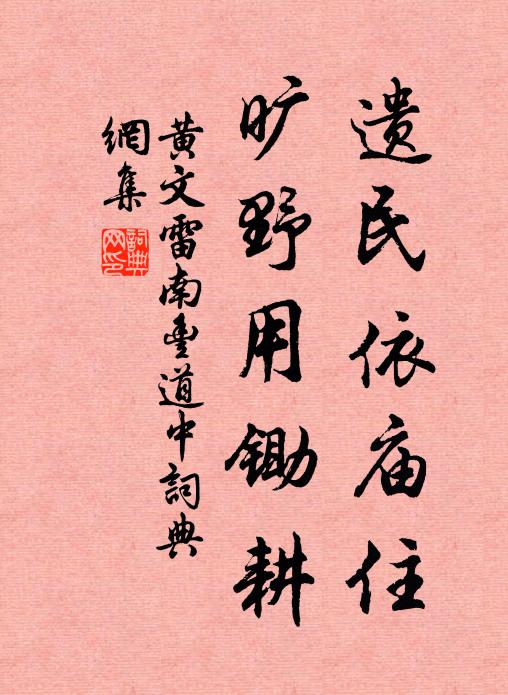 遗民依庙住
旷野用锄耕
黄文雷南豊道中詞典
網集
詞典
网印